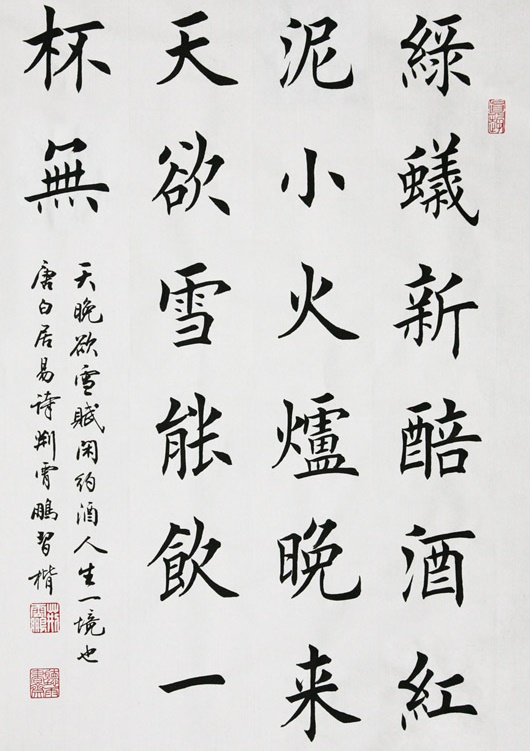 綠蟻新醅酒紅
泥小火爐晚来
天欲雪能飲一
杯無
天晚欲雪賦閑約酒人生一境也
唐白居易诗荆霄鵬習楷